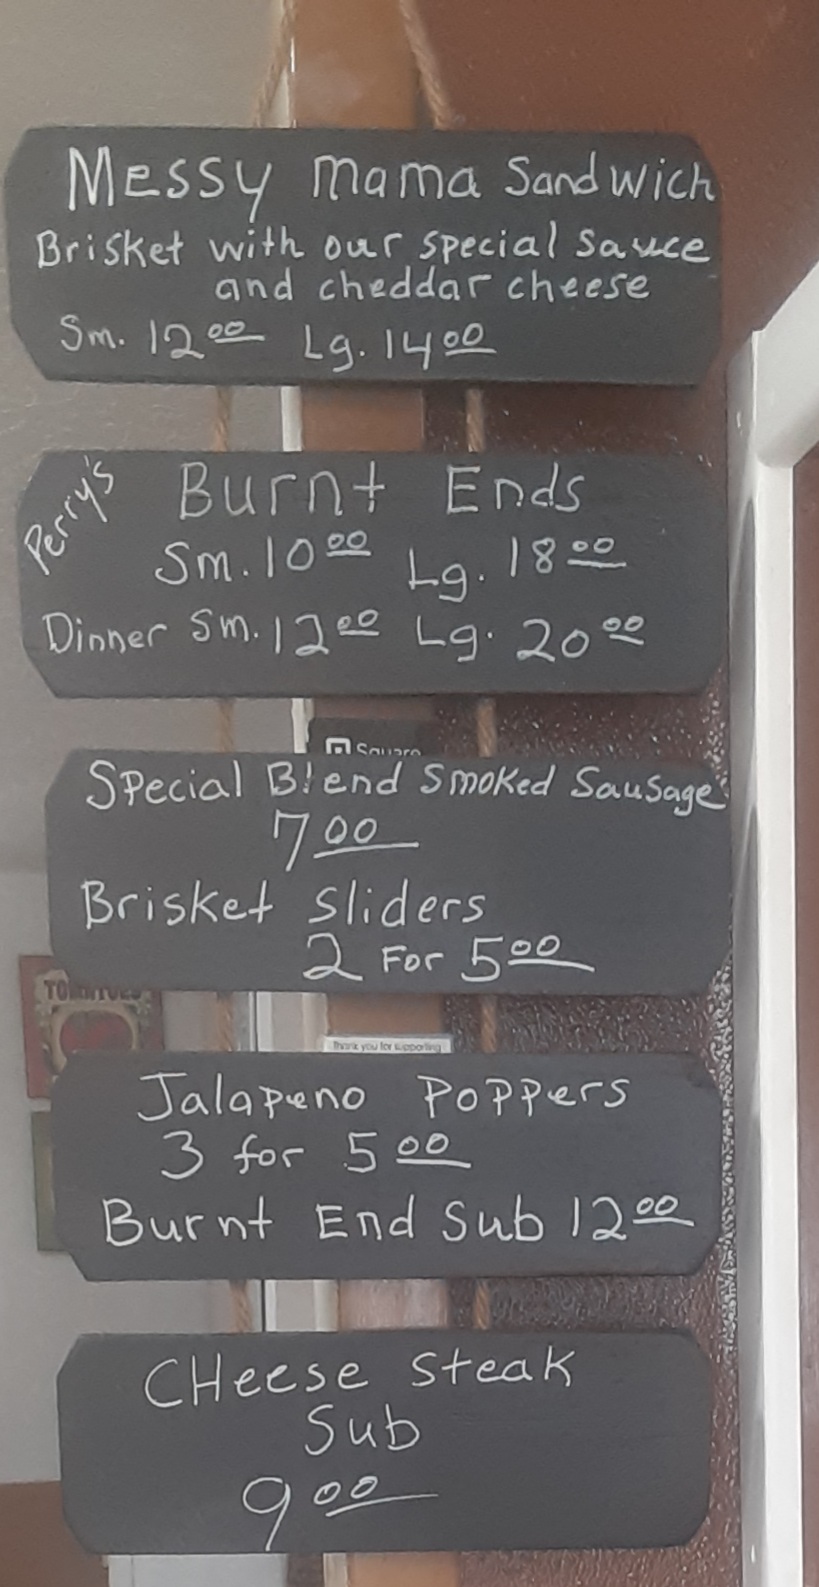 Messy Mama Sandwich
Brisket with our special sauce
and cheddar cheese
Sm. 12 00 Lg. 14 00
Perry's Burnt Ends
Sm. 10 00 Lg. 18 00
Dinner Sm. 12 00 Lg. 20 00
Square
Special Blend Smoked Sausage
7 00
Brisket Sliders
2 For 5 00
TOMATOES
Thank you for supporting
Jalapeno Poppers
3 for 5 00
Burnt End Sub 12 00
CHeese Steak
Sub
9 00